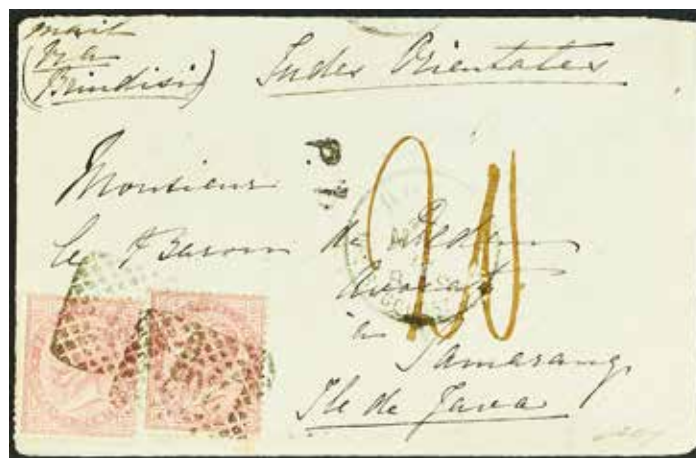 mail
(via
Brindisi)
Indes Orientales
Monsieur
le Baron de Dedem
Avocat
à
Samarang
Ile de Java
P.D.